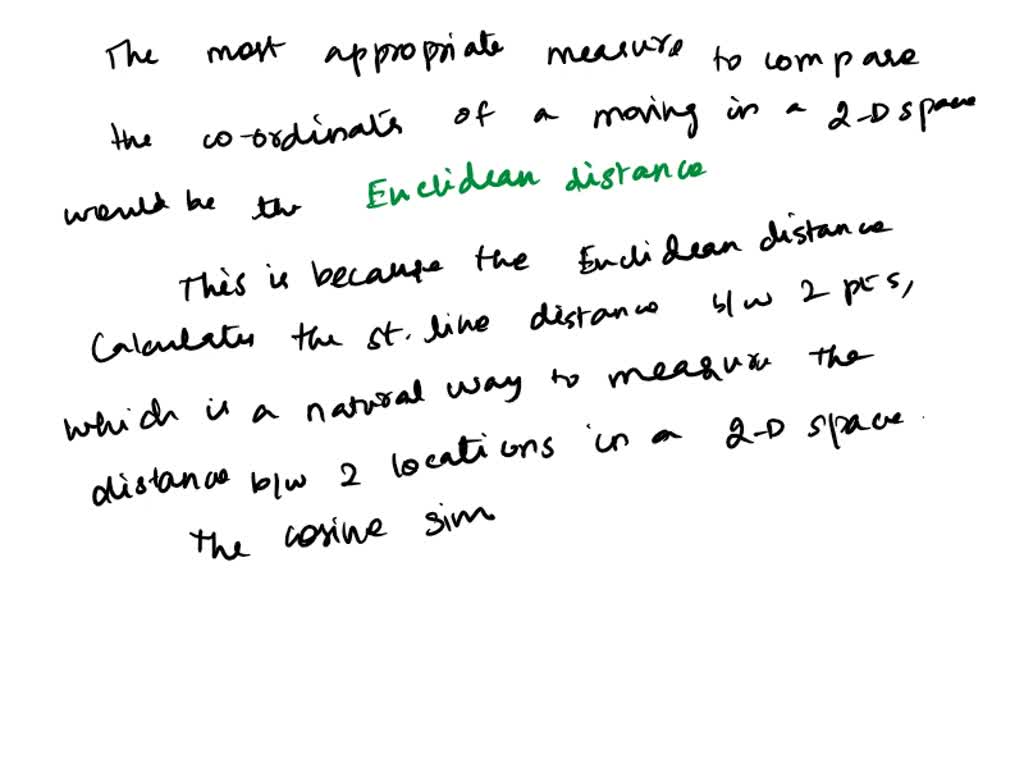 The most appropriate measure to compare
the co-ordinats of a moving in a 2-D space
would be the Euclidean distance
This is because the Euclidean distance
Calculates the st. line distance b/w 2 pts,
which is a natural way to measure the
distance b/w 2 locations in a 2-D space.
the cosine sim